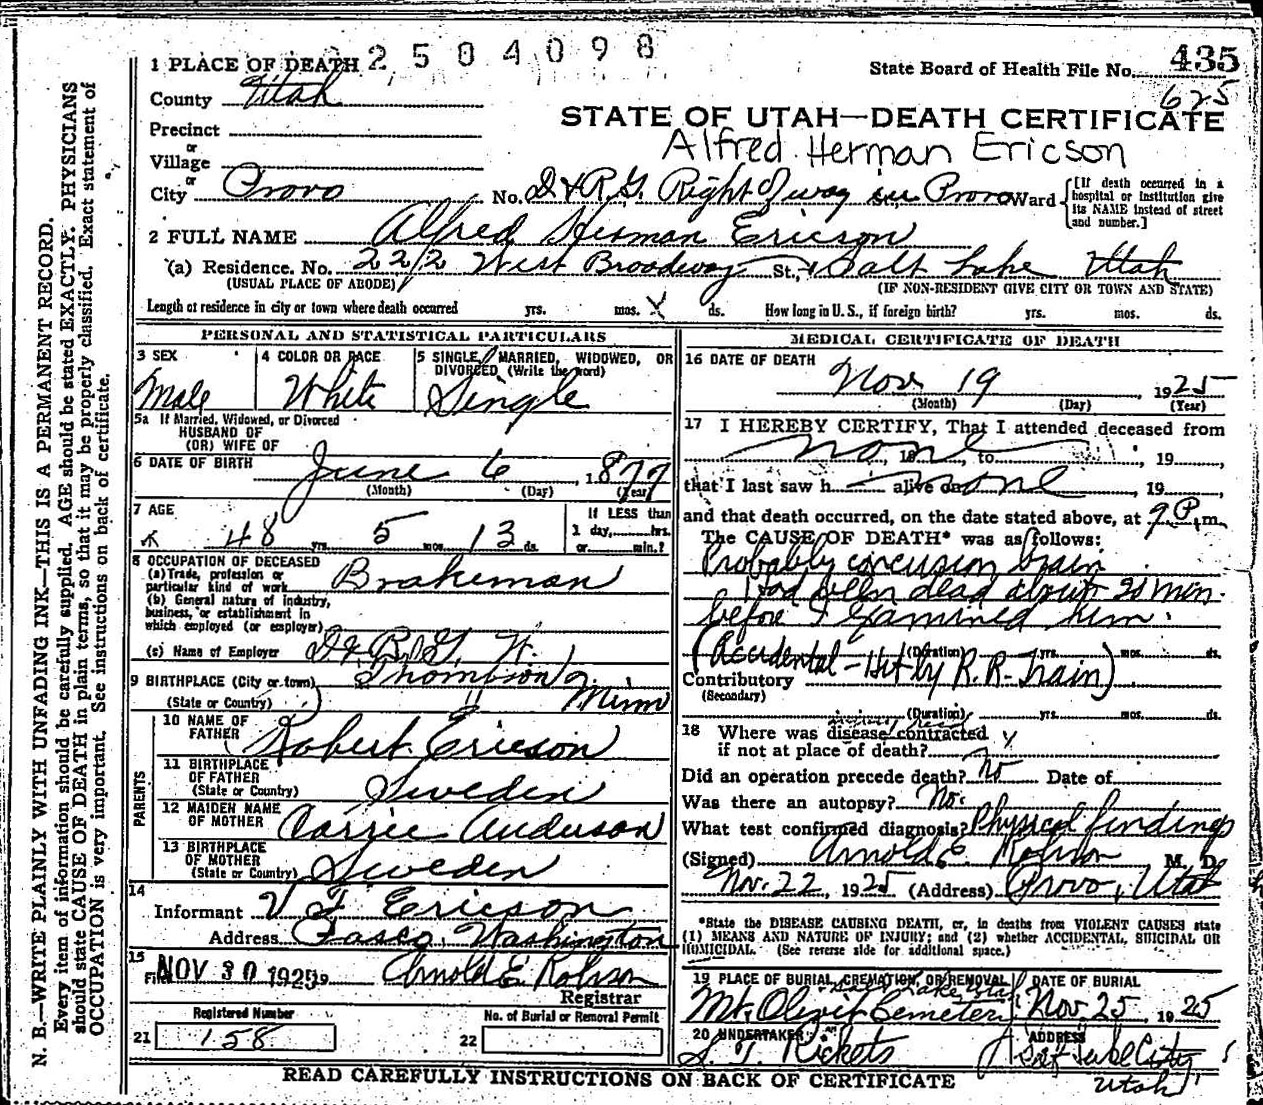 N. B.—WRITE PLAINLY WITH UNFADING INK—THIS IS A PERMANENT RECORD.
Every item of information should be carefully supplied. AGE should be stated EXACTLY. PHYSICIANS
should state CAUSE OF DEATH in plain terms, so that it may be properly classified. Exact statement of
OCCUPATION is very important. See instructions on back of certificate.
2504098
435
1 PLACE OF DEATH
State Board of Health File No.
625
County Utah
STATE OF UTAH—DEATH CERTIFICATE
Precinct
Alfred Herman Ericson
or
Village
or
City Provo No. D & R.G. Right of way in Provo Ward
[If death occurred in a hospital or institution give its NAME instead of street and number.]
2 FULL NAME Alfred Herman Ericson
(a) Residence. No. 22 1/2 West Broadway St., Salt Lake Utah
(USUAL PLACE OF ABODE) (IF NON-RESIDENT GIVE CITY OR TOWN AND STATE)
Length of residence in city or town where death occurred yrs. mos. ds. How long in U. S., if foreign birth? yrs. mos. ds.
PERSONAL AND STATISTICAL PARTICULARS
3 SEX
Male
4 COLOR OR RACE
White
5 SINGLE, MARRIED, WIDOWED, OR
DIVORCED (Write the word)
Single
5a If Married, Widowed, or Divorced
HUSBAND OF
(OR) WIFE OF
6 DATE OF BIRTH June 6, 1877
(Month) (Day) (Year)
7 AGE
48 yrs. 5 mos. 13 ds.
If LESS than
1 day, hrs.
or min.?
8 OCCUPATION OF DECEASED
(a) Trade, profession or
particular kind of work Brakeman
(b) General nature of industry,
business, or establishment in
which employed (or employer)
(c) Name of Employer D. & R. G. W.
9 BIRTHPLACE (City or town) Thompson
(State or Country) Minn
PARENTS
10 NAME OF
FATHER Robert Ericson
11 BIRTHPLACE
OF FATHER
(State or Country) Sweden
12 MAIDEN NAME
OF MOTHER Carrie Anderson
13 BIRTHPLACE
OF MOTHER
(State or Country) Sweden
14
Informant V F Ericson
Address Pasco, Washington
15
Filed NOV 30 1925 Arnold E. Robison
Registrar
Registered Number
21 158
No. of Burial or Removal Permit
22
MEDICAL CERTIFICATE OF DEATH
16 DATE OF DEATH
Nov 19 1925
(Month) (Day) (Year)
17 I HEREBY CERTIFY, That I attended deceased from
none, 19 to , 19
that I last saw h alive on none, 19
and that death occurred, on the date stated above, at 9 P. m.
The CAUSE OF DEATH* was as follows:
Probably concussion brain
Had been dead about 20 min.
before I examined him.
(Duration) yrs. mos. ds.
(Accidental - Hit by R.R. Train)
Contributory
(Secondary)
(Duration) yrs. mos. ds.
18 Where was disease contracted
if not at place of death?
Did an operation precede death? No Date of
Was there an autopsy? No.
What test confirmed diagnosis? Physical findings
(Signed) Arnold E. Robison M. D.
Nov. 22, 1925 (Address) Provo, Utah
*State the DISEASE CAUSING DEATH, or, in deaths from VIOLENT CAUSES state
(1) MEANS AND NATURE OF INJURY; and (2) whether ACCIDENTAL, SUICIDAL OR
HOMICIDAL. (See reverse side for additional space.)
19 PLACE OF BURIAL, CREMATION, OR REMOVAL
Salt Lake Utah
Mt. Olivit Cemetery
DATE OF BURIAL
Nov. 25 1925
20 UNDERTAKER
S. T. Rickets
ADDRESS
Salt Lake City
Utah
READ CAREFULLY INSTRUCTIONS ON BACK OF CERTIFICATE